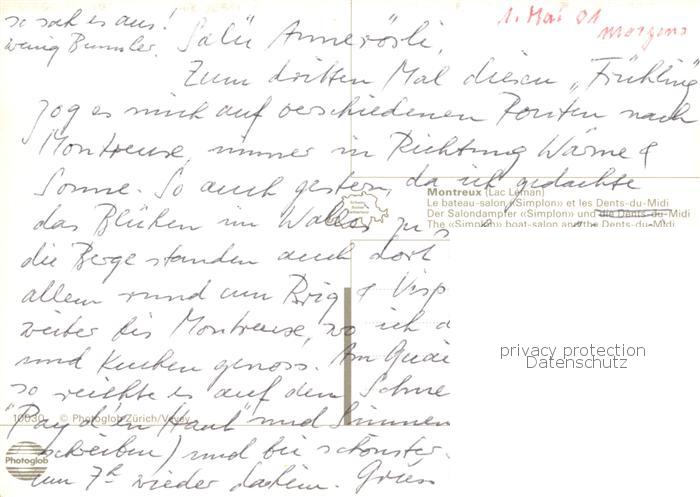 so sah es aus!
wenig Bummler.
1. Mai 01
morgens
Salü Annerösli,
Zum dritten Mal diesen „Frühling"
zog es mich auf verschiedenen Routen nach
Montreux, immer in Richtung Wärme &
Sonne. So auch gestern, da ich gedachte
das Blühen im Wallis zu
die Berge standen auch dort
allem rund um Brig & Visp
weiter bis Montreux, wo ich
und Kuchen genoss. Am Quai
so reichte es auf den
"Pays d'en Haut" und
schreiben) und bei schönster
um 7h wieder daheim. Gruss
Montreux (Lac Léman)
Le bateau-salon «Simplon» et les Dents-du-Midi
Der Salondampfer «Simplon» und die Dents-du-Midi
The «Simplon» boat-salon and the Dents-du-Midi
10030 © Photoglob Zürich/Vevey
Photoglob
privacy protection
Datenschutz